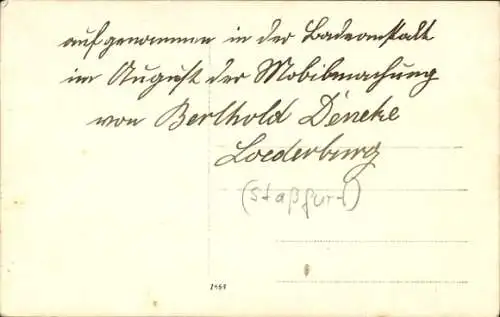 aufgenommen in der Badeanstalt
im August der Mobilmachung
von Berthold Deneke
Loederburg
(Staßfurt)